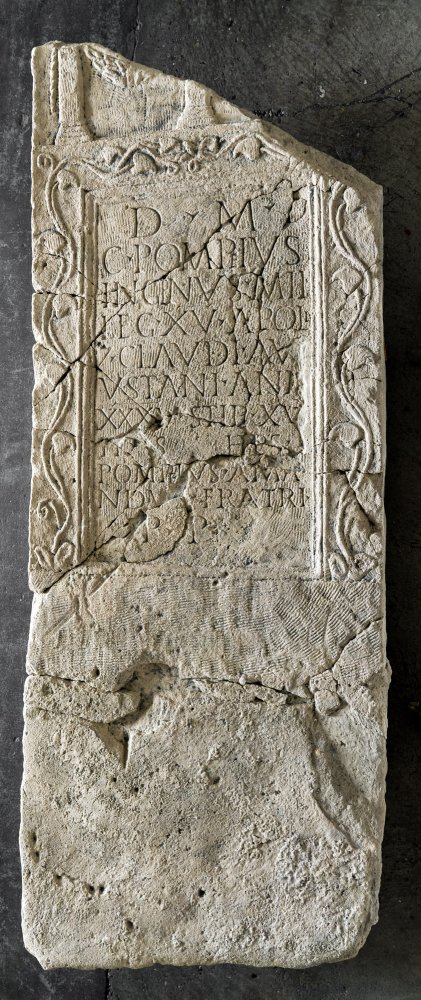 D · M · S
C · POMPEIVS
INGENVVS · MIL
LEG · XV · APOL
7 · CLAVDI · AV
VSTANI · AN
XXX · STIP · XV
H · S · E · H · S
POMPEIVS · AMA
NDVS · FRATRI
P · P